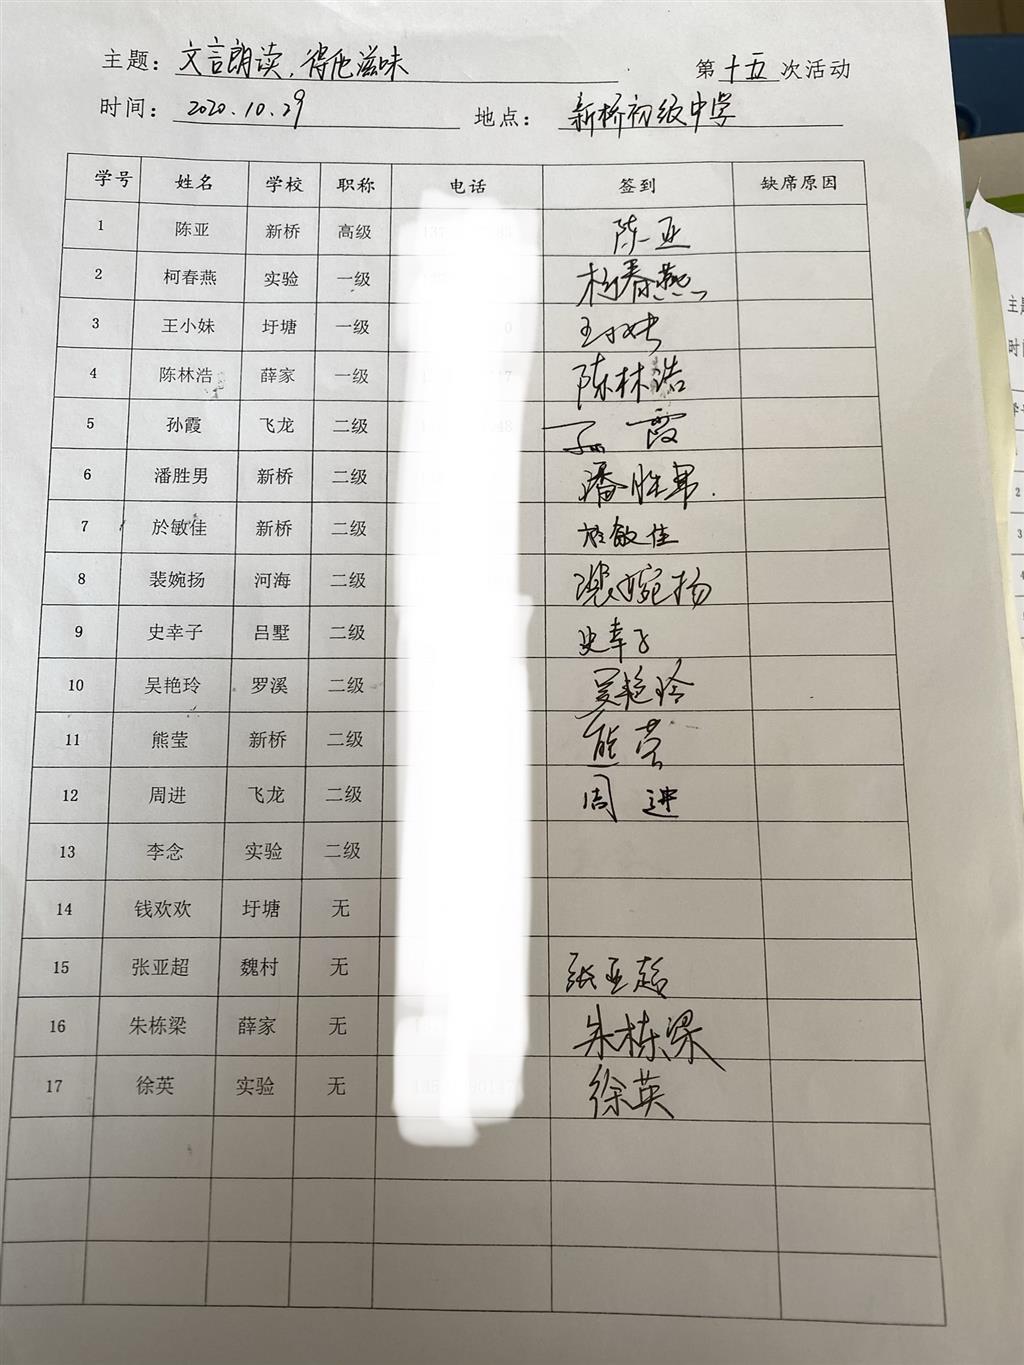 主题：文言朗读，得他滋味 第十五次活动
时间：2020.10.29 地点：新桥初级中学
学号 姓名 学校 职称 电话 签到 缺席原因
1 陈亚 新桥 高级 陈亚
2 柯春燕 实验 一级 柯春燕
3 王小妹 圩塘 一级 王小妹
4 陈林浩 薛家 一级 陈林浩
5 孙霞 飞龙 二级 孙霞
6 潘胜男 新桥 二级 潘胜男.
7 於敏佳 新桥 二级 於敏佳
8 裴婉扬 河海 二级 裴婉扬
9 史幸子 吕墅 二级 史幸子
10 吴艳玲 罗溪 二级 吴艳玲
11 熊莹 新桥 二级 熊莹
12 周进 飞龙 二级 周进
13 李念 实验 二级
14 钱欢欢 圩塘 无
15 张亚超 魏村 无 张亚超
16 朱栋梁 薛家 无 朱栋梁
17 徐英 实验 无 徐英